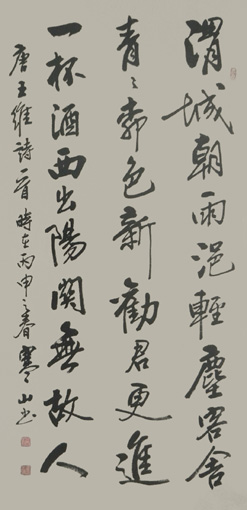 渭城朝雨浥輕塵客舍
青々柳色新勸君更進
一杯酒西出陽關無故人
唐王維詩一首時在丙申之春寒山书